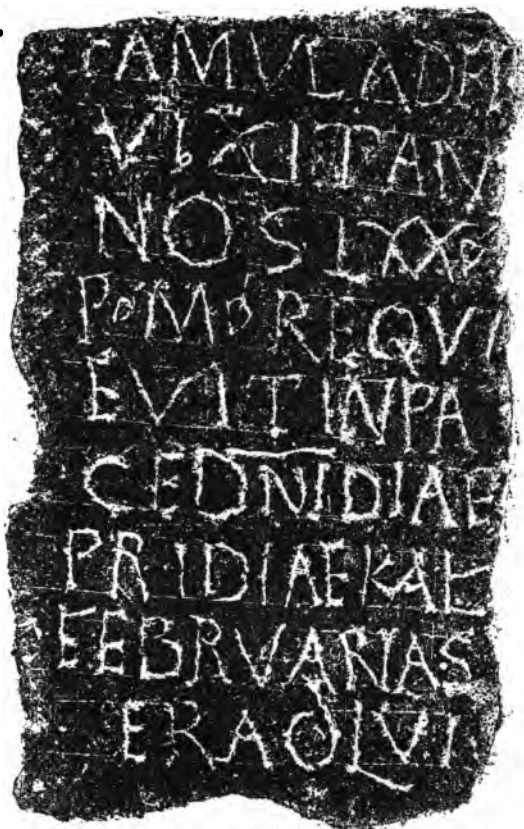 FAMVLA DEI
VIXIT AN
NOS LXX
P M REQVI
EVIT IN PA
CE DNI DIAE
PRIDIAE KAL
FEBRVARIAS
ERA DLVI